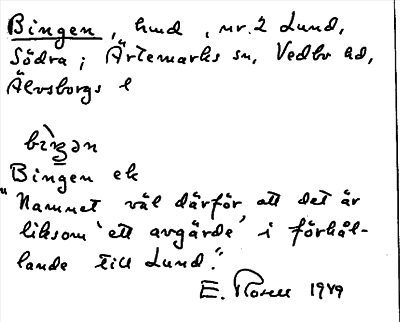 Bingen, hmd, nr. 2 Lund,
Södra; Ärtemarks sn, Vedbo hd,
Älvsborgs l
bìŋən
Bingen ek
"Namnet väl därför att det är
liksom 'ett avgärde' i förhål-
lande till Lund."
E. Rosell 1949